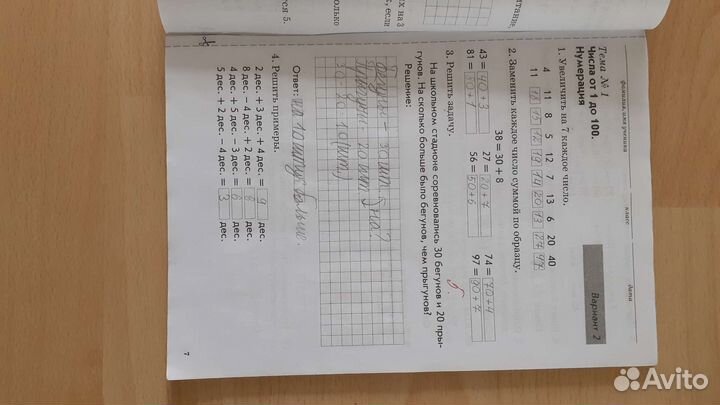 ся 5.
сколько
ых на 3
с, если
читание,
фамилия, имя ученика
класс
дата
Тема № 1
Числа от 1 до 100.
Нумерация
Вариант 2
1. Увеличить на 7 каждое число.
4 11 8 5 12 7 13 6 20 40
11 18 15 12 19 14 20 13 27 47
2. Заменить каждое число суммой по образцу.
38 = 30 + 8
43 = 40+3 27 = 20+7 74 = 70+4
81 = 80+1 56 = 50+6 97 = 90+7
3. Решить задачу.
На школьном стадионе соревновались 30 бегунов и 20 пры-
гунов. На сколько больше было бегунов, чем прыгунов?
Решение:
Бегуны - 30 шт. на?
Прыгуны - 20 шт
30 - 20 = 10 (шт.)
Ответ: на 10 штук больше.
4. Решить примеры.
2 дес. + 3 дес. + 4 дес. = 9 дес.
8 дес. − 4 дес. + 2 дес. = 6 дес.
4 дес. + 5 дес. − 3 дес. = 6 дес.
5 дес. + 2 дес. − 4 дес. = 3 дес.
7
Avito